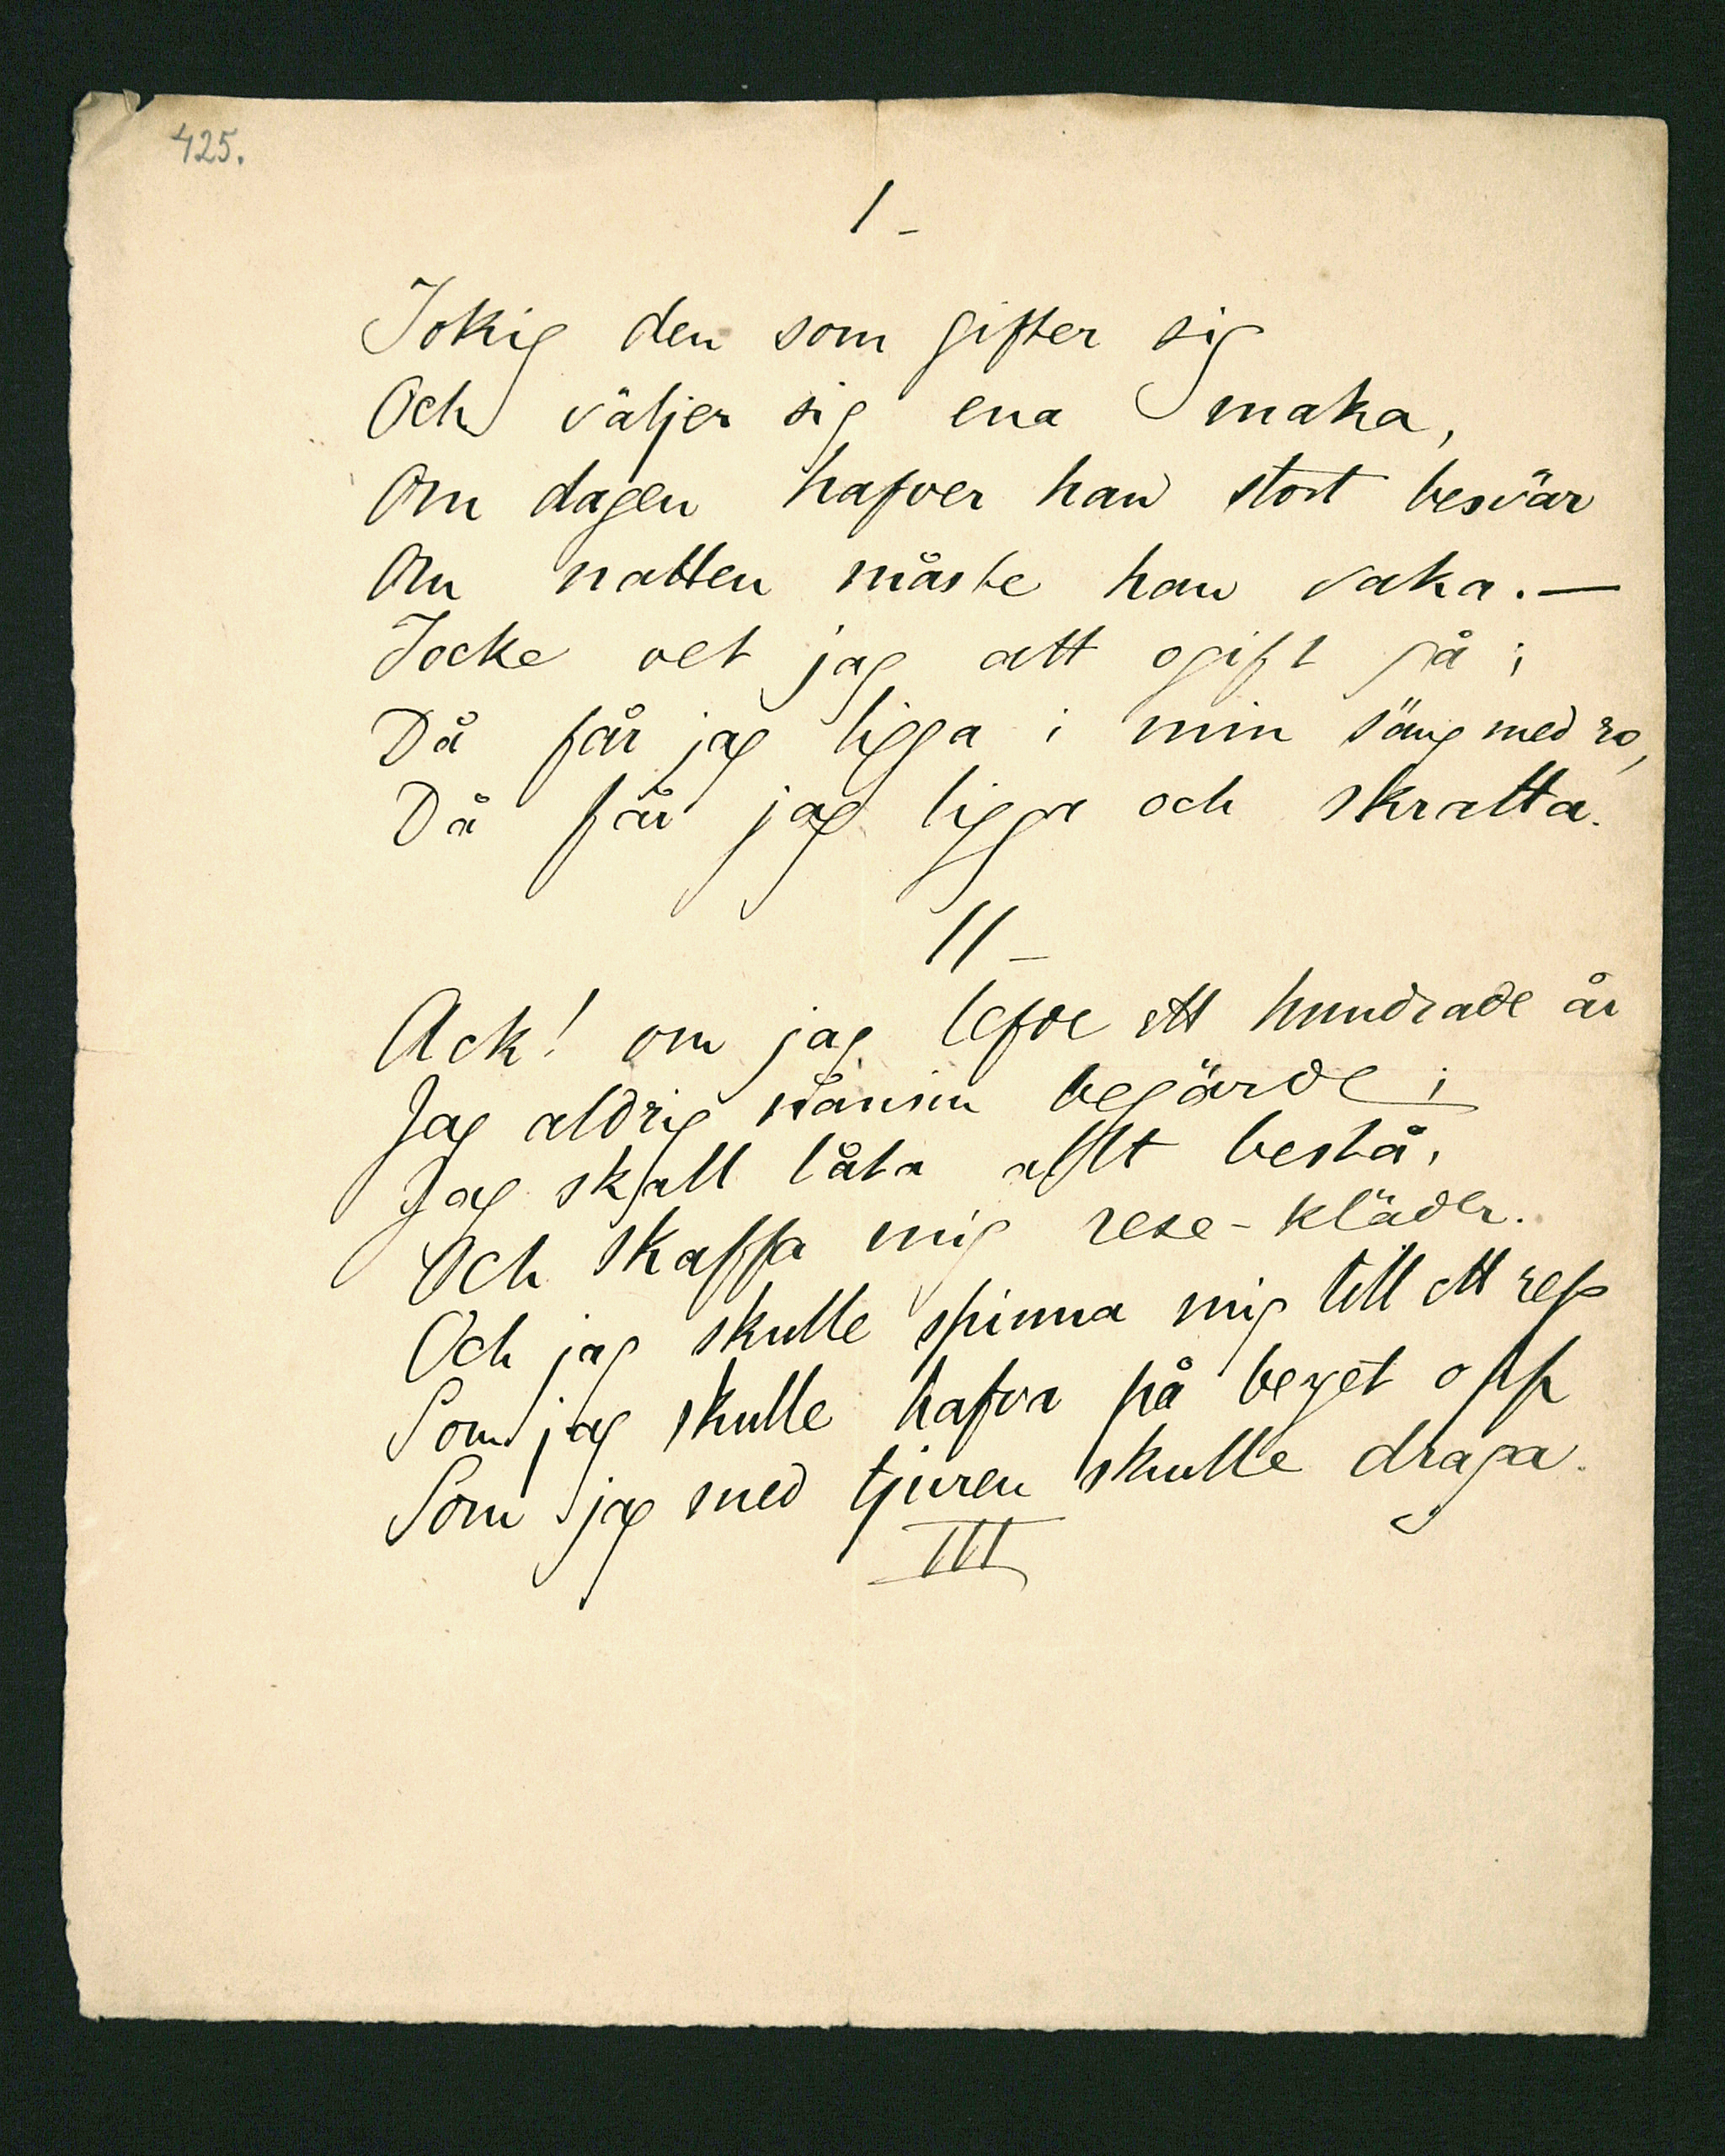 425.
I-
Tokig den som gifter sig
Och väljer sig ena maka,
Om dagen hafver han stort besvär
Om natten måste han vaka.—
Icke vet jag att ogift gå;
Då får jag ligga i min säng med ro,
Då får jag ligga och skratta.
II-
Ack! om jag lefde ett hundrade år
Jag aldrig nånsin begärde;
Jag skall låta allt bestå,
Och skaffa mig rese-kläder.
Och jag skulle spinna mig till ett rep
Som jag skulle hafva på berget opp
Som jag med tjuren skulle draga.
III